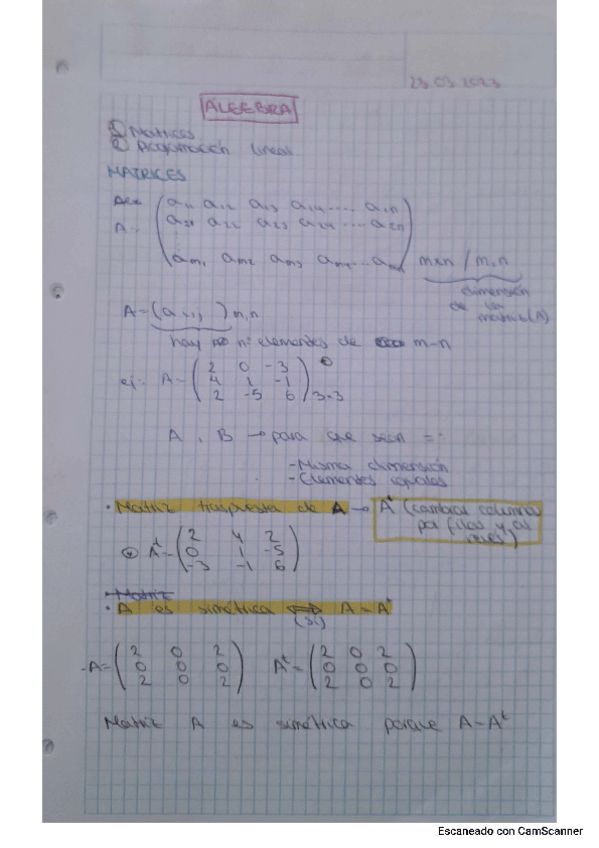 23.03.2023
ÁLGEBRA
① Matrices
② lineal
MATRICES
A = ( a11 a12 a13 a14 .... a1n
a21 a22 a23 a24 .... a2n
am1 am2 am3 am4 ... ) mxn / m,n
dimensión
de la
matriz (A)
A = (a i,j )m,n
hay nº elementos de m-n
ej: A = ( 2 0 -3
4 1 -1
2 -5 6 ) 3x3
A , B → para que sean =:
- Misma dimensión
- Elementos iguales
• Matriz traspuesta de A → At (cambiar columna
por filas y al
revés)
At = ( 2 4 2
0 1 -5
-3 -1 6 )
Matriz
• A es simétrica ⟺ A = At
(si)
-A = ( 2 0 2 At = ( 2 0 2
0 0 0 0 0 0
2 0 2 ) 2 0 2 )
Matriz A es simétrica porque A = At
Escaneado con CamScanner